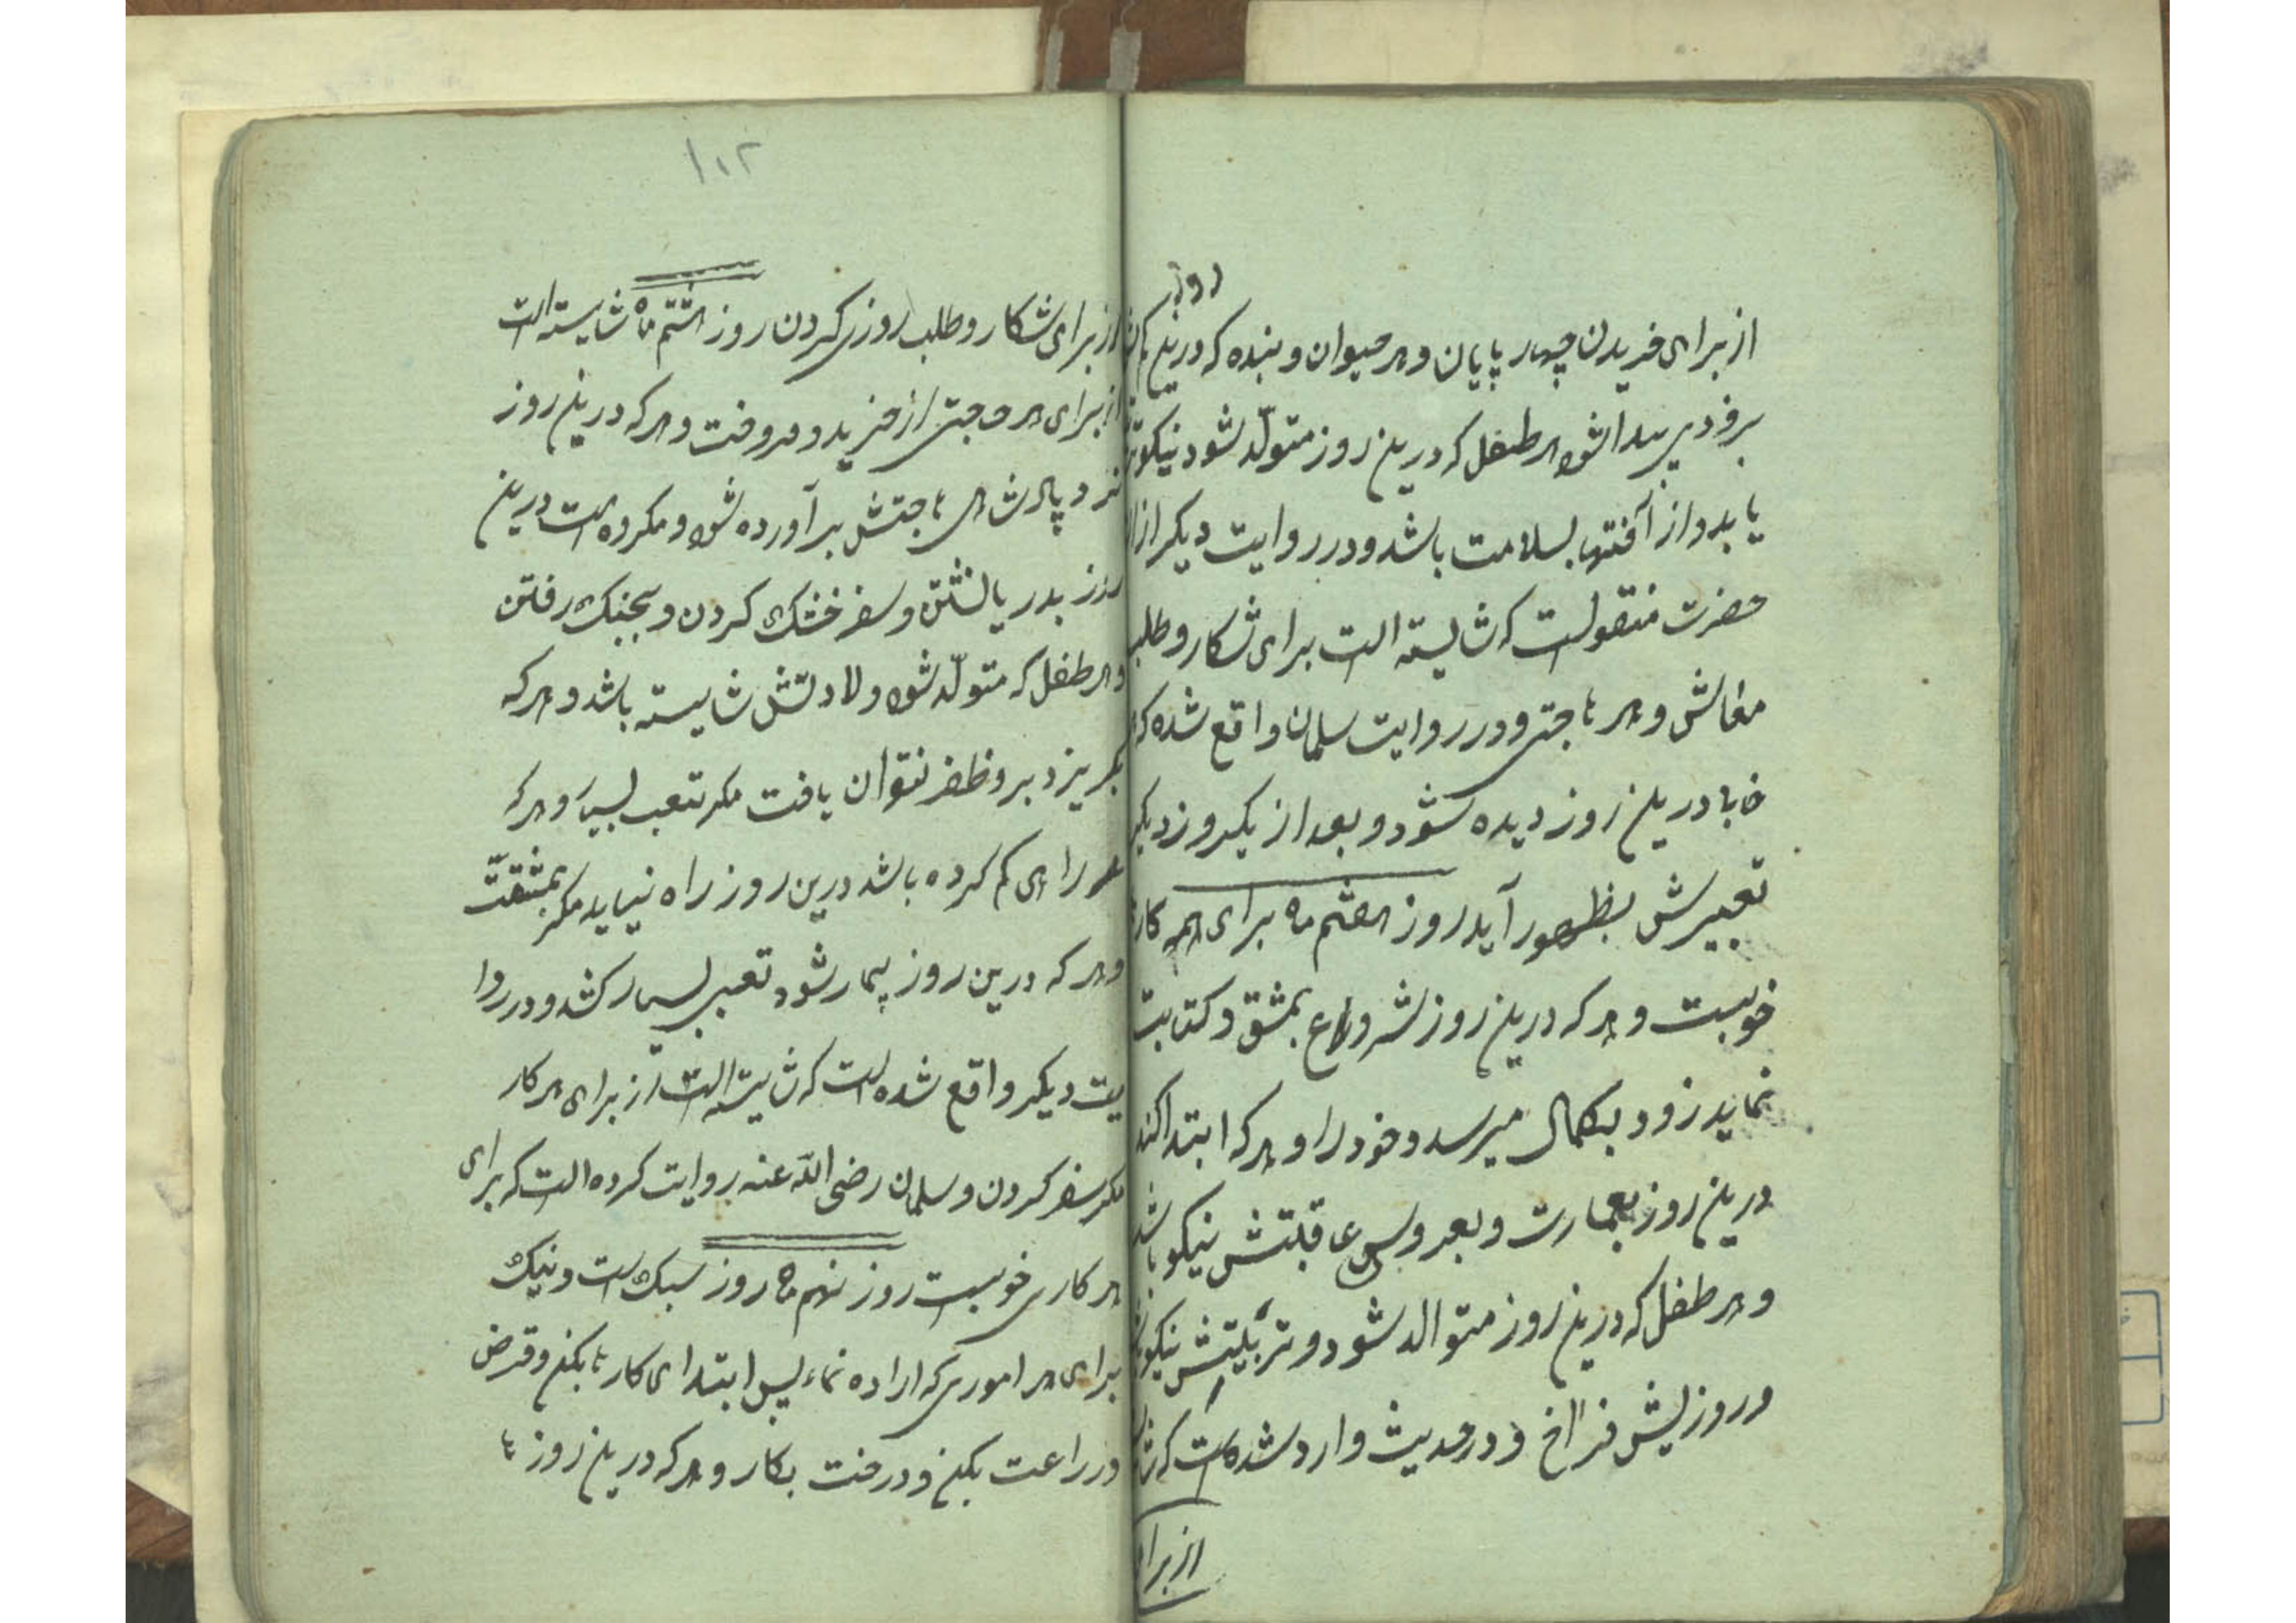 روز
از برای خریدن چهار پایان و هر حیوان و بنده که درین
برود پیدا شود هر طفل که درین روز متولّد شود نیکو
یابد و از آفتها بسلامت باشد و در روایت دیگر از
حضرت منقولست که شایسته است برای شکار و طلب
معاش و هر حاجتی و در روایت سلمان واقع شده که
خابها درین روز دیده شود و بعد از یکروز دیگر
تعبیرش بظهور آید روز هفتم ماه برای همه کار
خوبست و هر که درین روز شروع بمشق و کتابت
نماید زود بکمال میرسد و خود را و هر که ابتدا کند
درین روز بعمارت و بعروس عاقبتش نیکو باشد
و هر طفل که درین روز متوالد شود و تربیتش نیکو
و روزیش فراخ و در حدیث وارد شده است که
از برا
۱۰۲
از برای شکار و طلب روزی کردن روز هشتم ماه شایسته است
از برای هر حاجتی از خرید و فروخت و هر که درین روز
نزد پادشاهی حاجتش برآورده شود و مکروه است درین
روز بدریا نشتن و سفر خشک کردن و بجنک رفتن
و هر طفل که متولّد شود ولادتش شایسته باشد و هر که
بگریزد برو ظفر نتوان یافت مکر بتعب بسیار و هر که
راهی کم کرده باشد درین روز راه نیابد مکر بمشقّت
و هر که درین روز بیمار شود تعب بسیار کشد و در روا
یت دیکر واقع شده است که شایسته است از برای هر کار
مکر سفر کردن و سلمان رضی الله عنه روایت کرده است که برای
هر کاری خوبست روز نهم ماه روز سبک است و نیک
برای هر اموری که اراده نماء پس ابتدای کارها بکن و قرض
و زراعت بکن و درخت بکار و هر که درین روز با